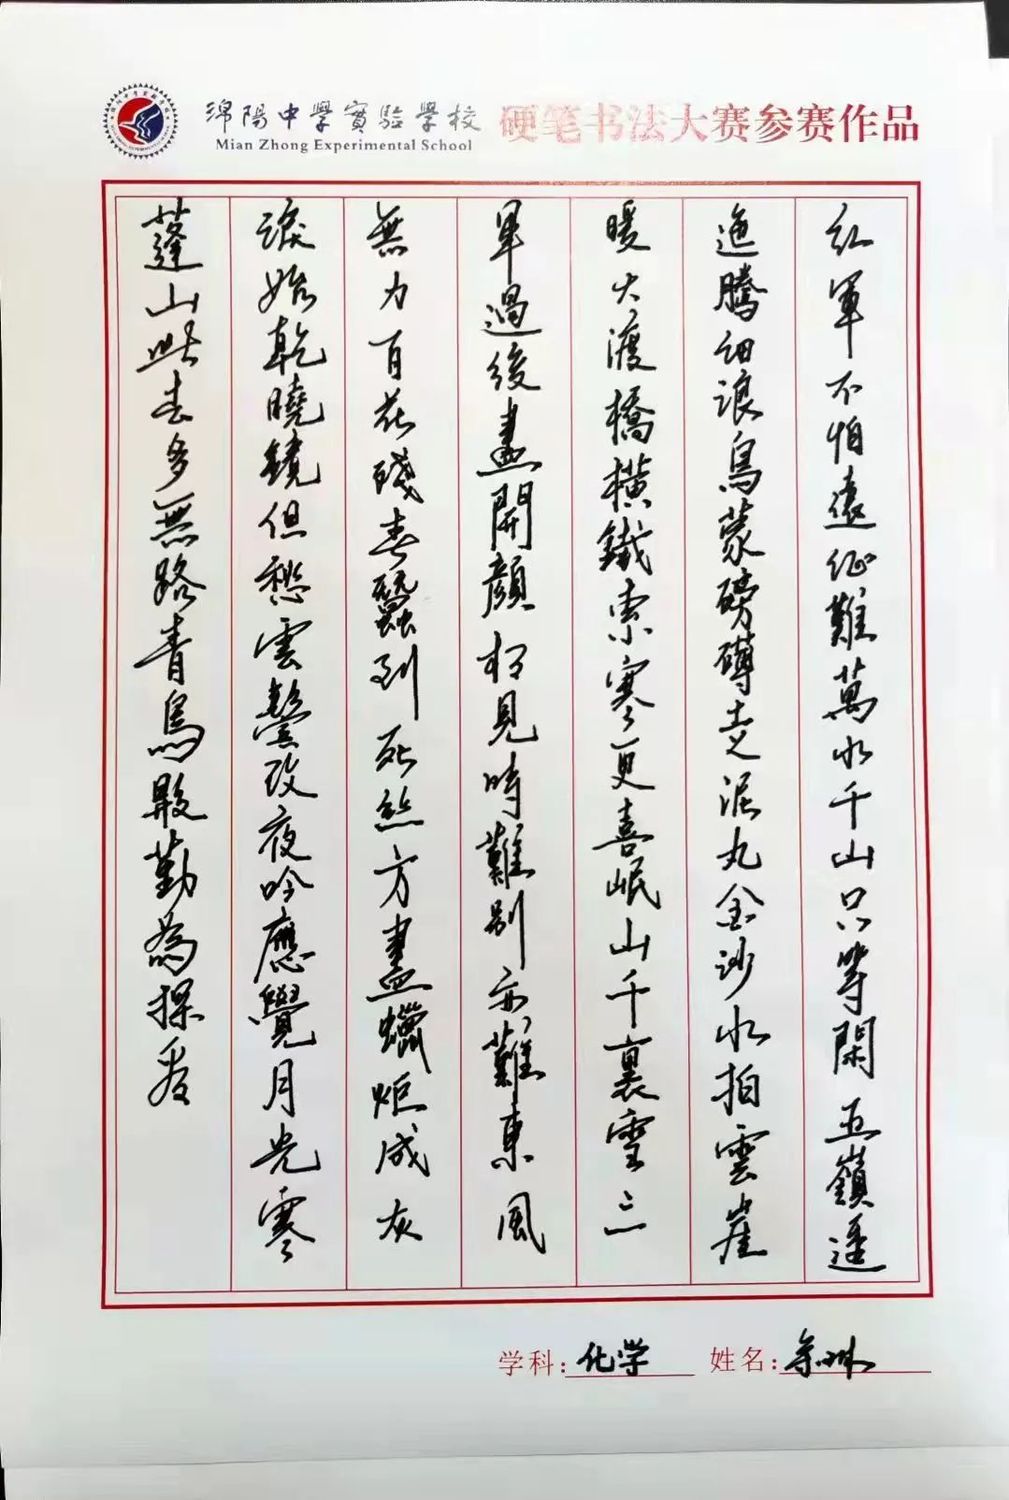 绵陽中學實驗學校
Mian Zhong Experimental School
硬笔书法大赛参赛作品
紅軍不怕遠征難萬水千山只等閑五嶺逶
迤騰細浪烏蒙磅礴走泥丸金沙水拍雲崖
暖大渡橋橫鐵索寒更喜岷山千裏雪三
軍過後盡開顏相見時難別亦難東風
無力百花殘春蠶到死絲方盡蠟炬成灰
淚始乾曉鏡但愁雲鬢改夜吟應覺月光寒
蓬山此去多無路青鳥殷勤為探看
学科:化学
姓名: